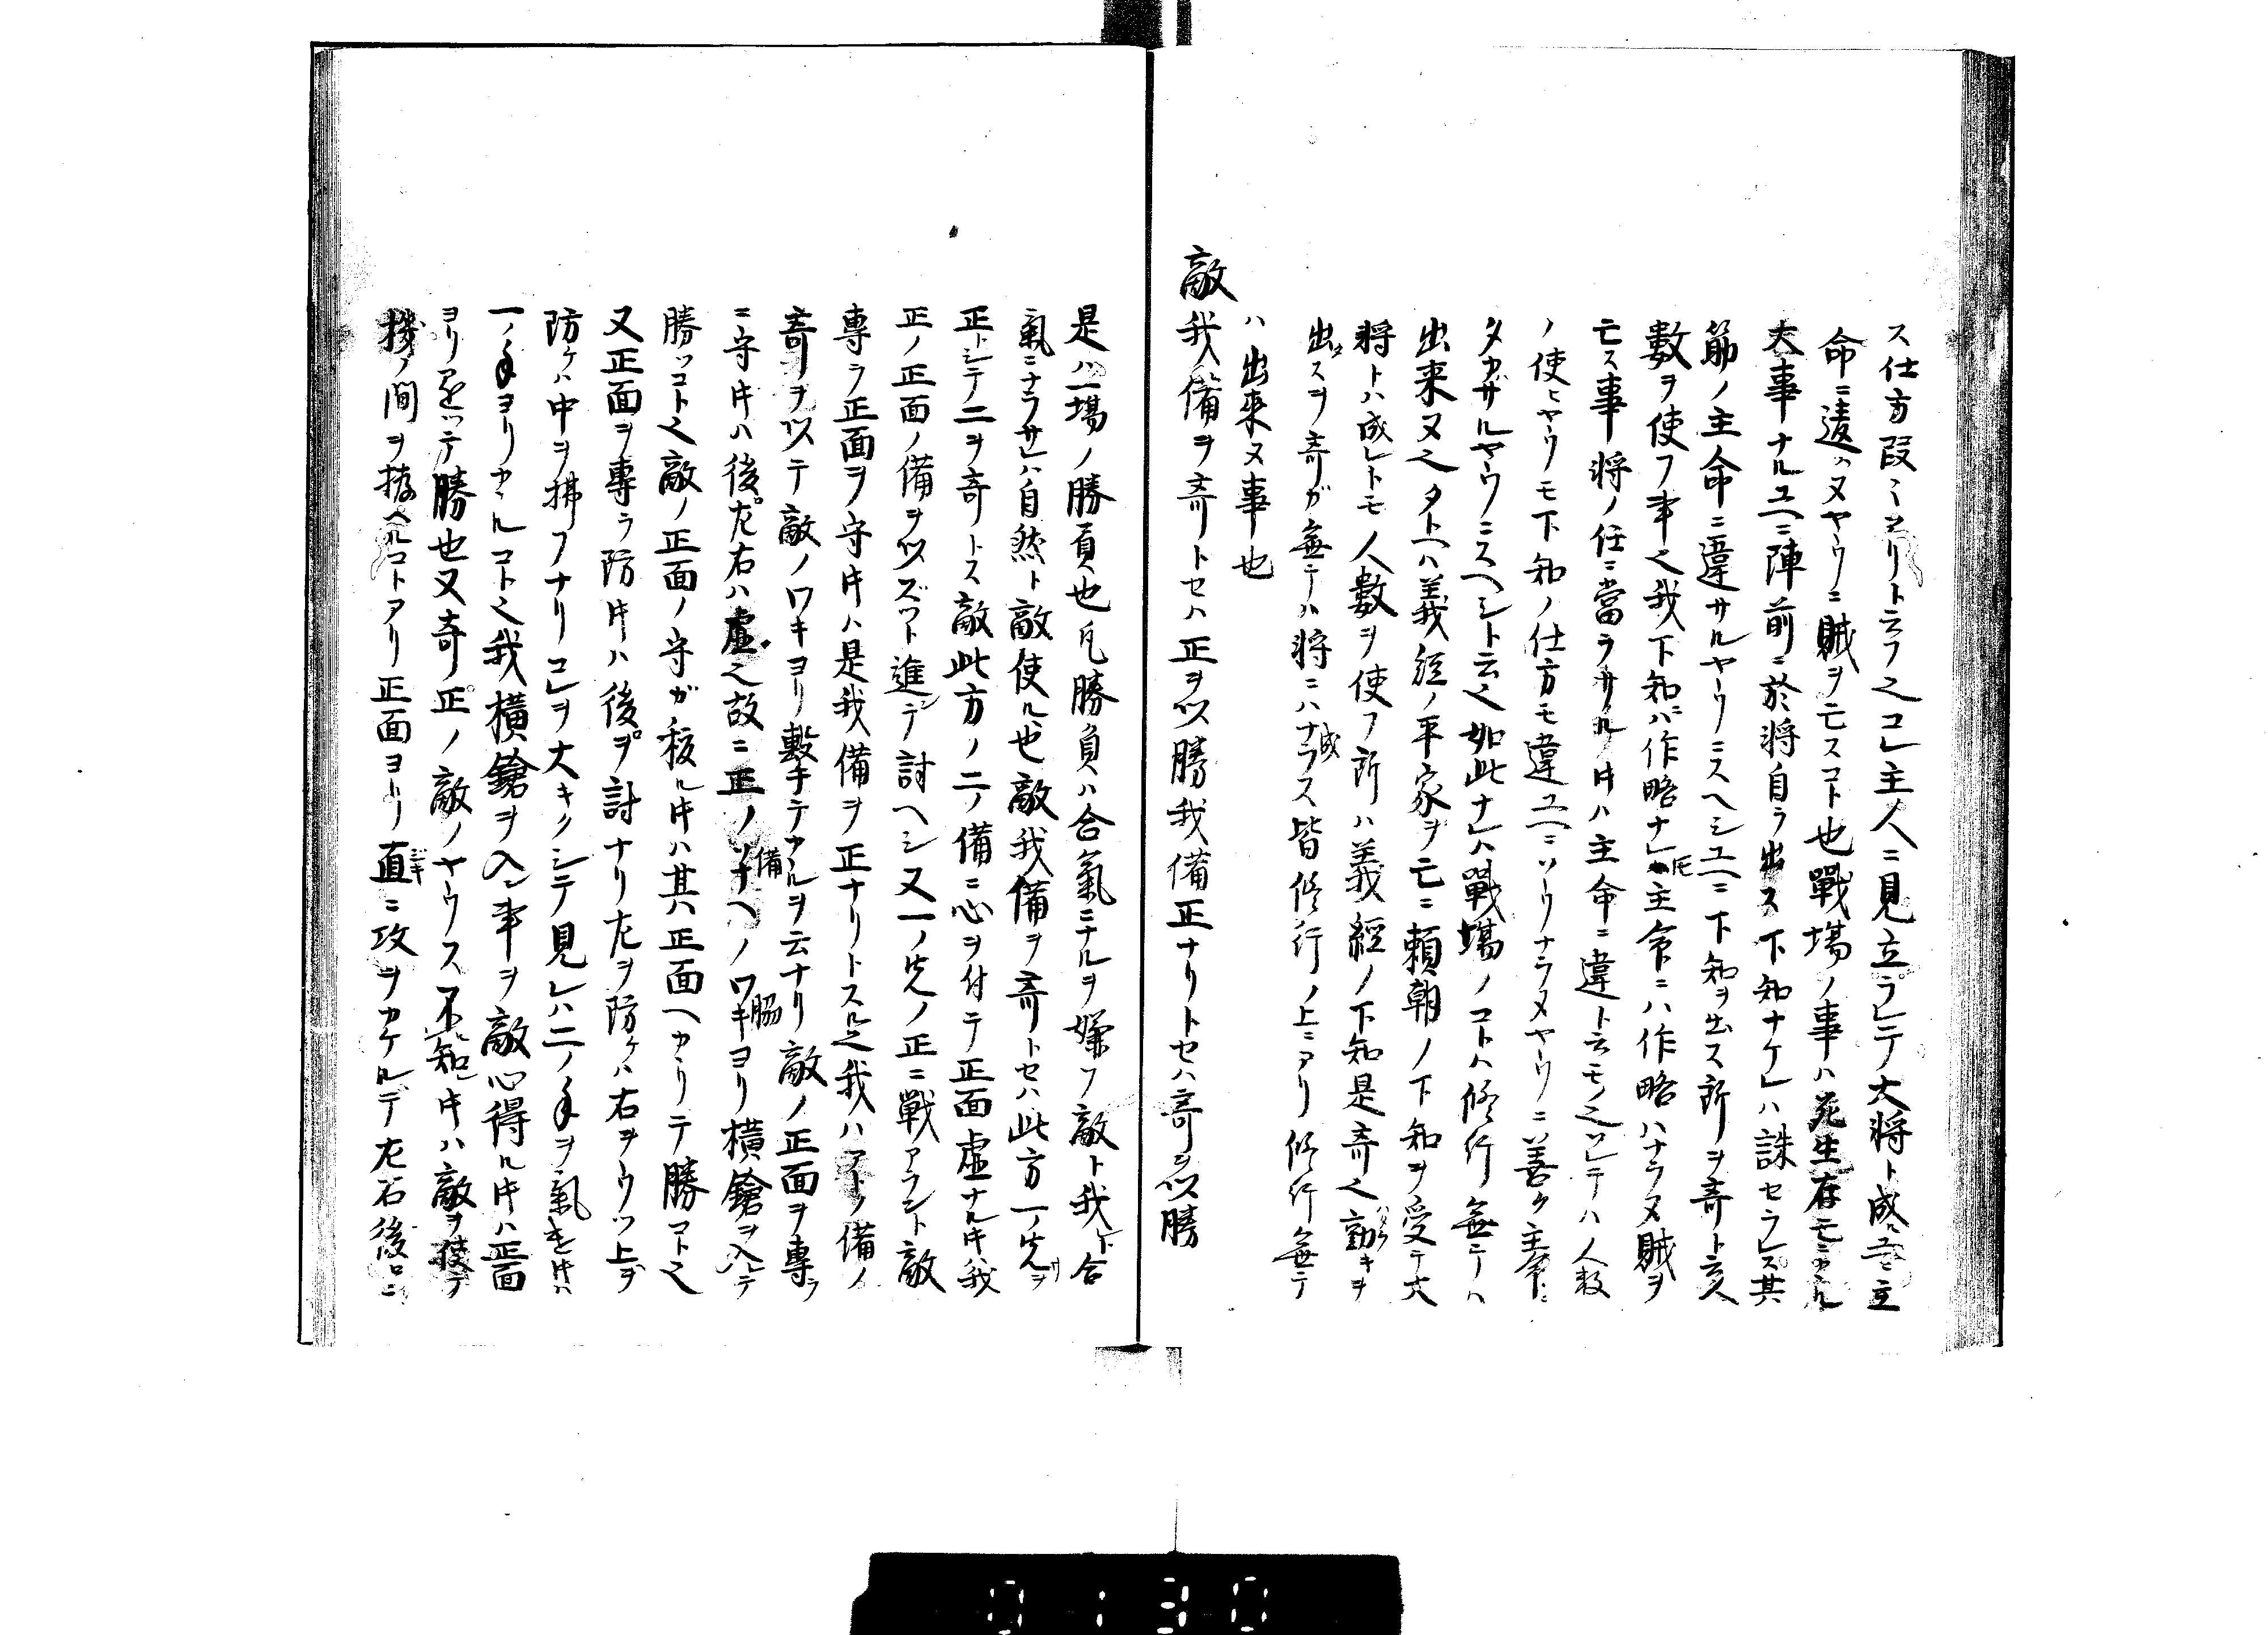 ス仕方段ミヨリト云フ之コレ主人ニ見立ラレテ大将ト成ユヘ主
命ニ違ハヌヤウニ賊ヲ亡スコト也戰場ノ事ハ死生存亡ニカヽル
大事ナルユヘニ陣前ニ於将自ラ出ス下知ナケレハ誅セラレス其
筋ノ主命ニ違サルヤウニスヘシユヘニ下知ヲ出ス所ヲ奇ト云人
數ヲ使フ事之我下知ハ作略ナレ𪜈主命ニハ作略ハナラヌ賊ヲ
亡ス事将ノ任ニ當ラサル時ハ主命ニ違ト云モノ之ソレテハ人数
ノ使ヒヤウモ下知ノ仕方モ違ユヘニソウナラヌヤウニ善ク主命ニ
タカザルヤウニスヘシト云之如此ナレハ戰場ノコトハ修行無テハ
出来ヌ之タトヘハ義経ノ平家ヲ亡ニ頼朝ノ下知ヲ受テ大
将トハ成レトモ人數ヲ使フ所ハ義経ノ下知是奇之働キヲ
出スヲ奇ガ無テハ将ニハ成ラス皆修行ノ上ニアリ修行無テ
ハ出来ヌ事也
敵我備ヲ奇トセハ正ヲ以勝我備正ナリトセハ奇ヲ以勝
是ハ一場ノ勝負也凡勝負ハ合氣ニナルヲ嫌フ敵ト我ト合
氣ニナラサレハ自然ト敵使ル也敵我備ヲ奇トセハ此方一ノ先ヲ
正トシテ二ヲ奇トス敵此方ノ二ノ備ニ心ヲ付テ正面虚ナル時我
正ノ正面ノ備ヲ以ズツト進テ討ヘシ又一ノ先ノ正ニ戰アラント敵
專ラ正面ヲ守時ハ是我備ヲ正ナリトスル之我ハアトノ備ノ
奇ヲ以テ敵ノワキヨリ數手テカヽルヲ云ナリ敵ノ正面ヲ專ラ
ニ守時ハ後左右ハ虚之故ニ正ノ備ヘノワキ脇ヨリ横鎗ヲ入レテ
勝ツコト之敵ノ正面ノ守ガ移ル時ハ其ハ正面ヘカヽリテ勝コト之
又正面ヲ專ラ防時ハ後ヲ討ナリ左ヲ防ケハ右ヲウツ上ヲ
防ケハ中ヲ拂フナリコレヲ大キクシテ見レハ二ノ手ヲ氣遣時ハ
一ノ手ヨリカヽルコト之我横鎗ヲ入ン事ヲ敵心得ル時ハ正面
ヨリ進ツテ勝也又奇正ノ敵ノヤウス不知時ハ敵ヲ使テ
機ノ間ヲ撥ヘルコトアリ正面ヨリ直ニ攻ヲカケルデ左右後ロニ
0130